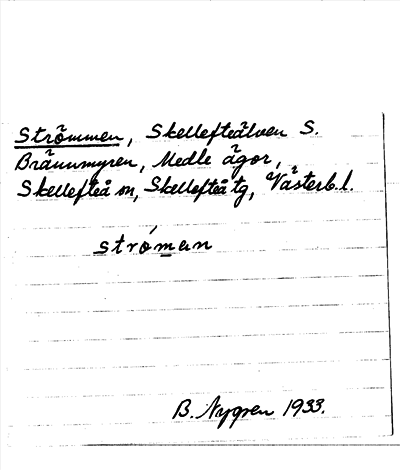 Strömmen, Skellefteälven S.
Brännmyren, Medle ägor,
Skellefteå sn, Skellefteå tg, Västerb. l.
strómen
B. Nygren 1933.